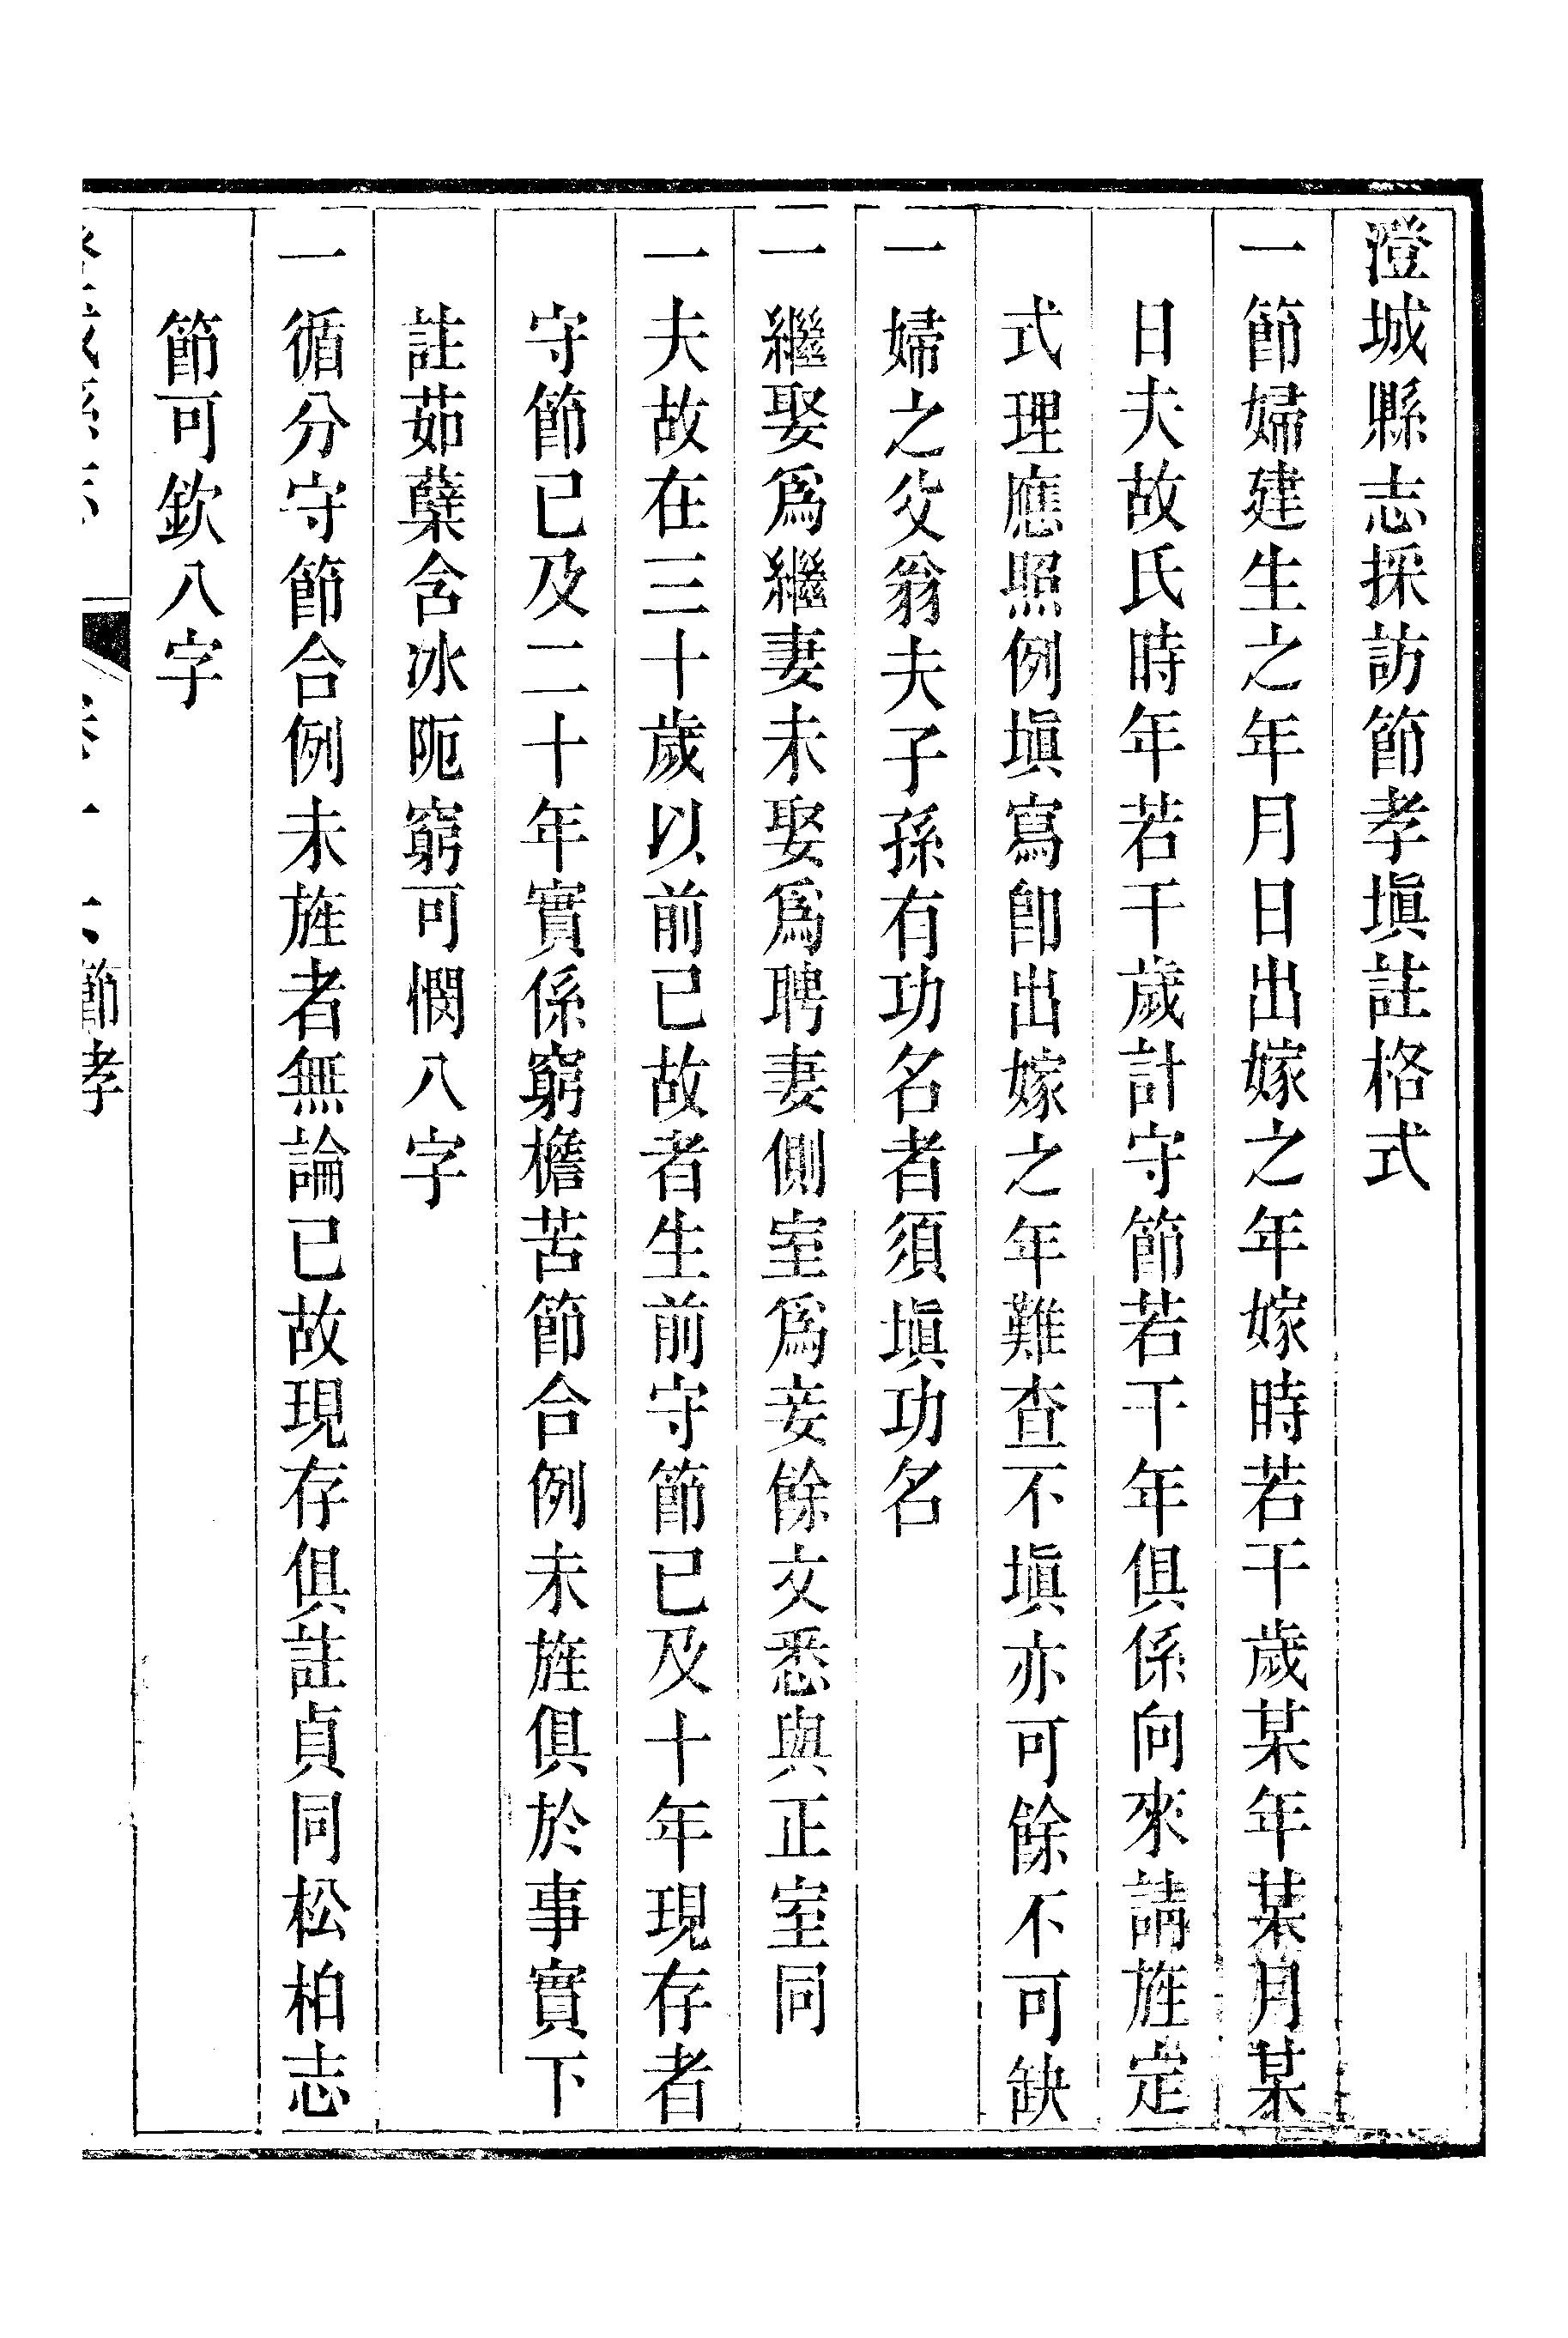 澄城縣志採訪節孝塡註格式
一節婦建生之年月日出嫁之年嫁時若干歲某年某月某
日夫故氏時年若干歲計守節若干年俱係向來請旌定
式理應照例塡寫卽出嫁之年難查不塡亦可餘不可缺
一婦之父翁夫子孫有功名者須塡功名
一繼娶爲繼妻未娶爲聘妻側室爲妾餘文悉與正室同
一夫故在三十歲以前已故者生前守節已及十年現存者
守節已及二十年實係窮檐苦節合例未旌俱於事實下
註茹蘖含冰阨窮可憫八字
一循分守節合例未旌者無論已故現存俱註貞同松柏志
節可欽八字
節孝